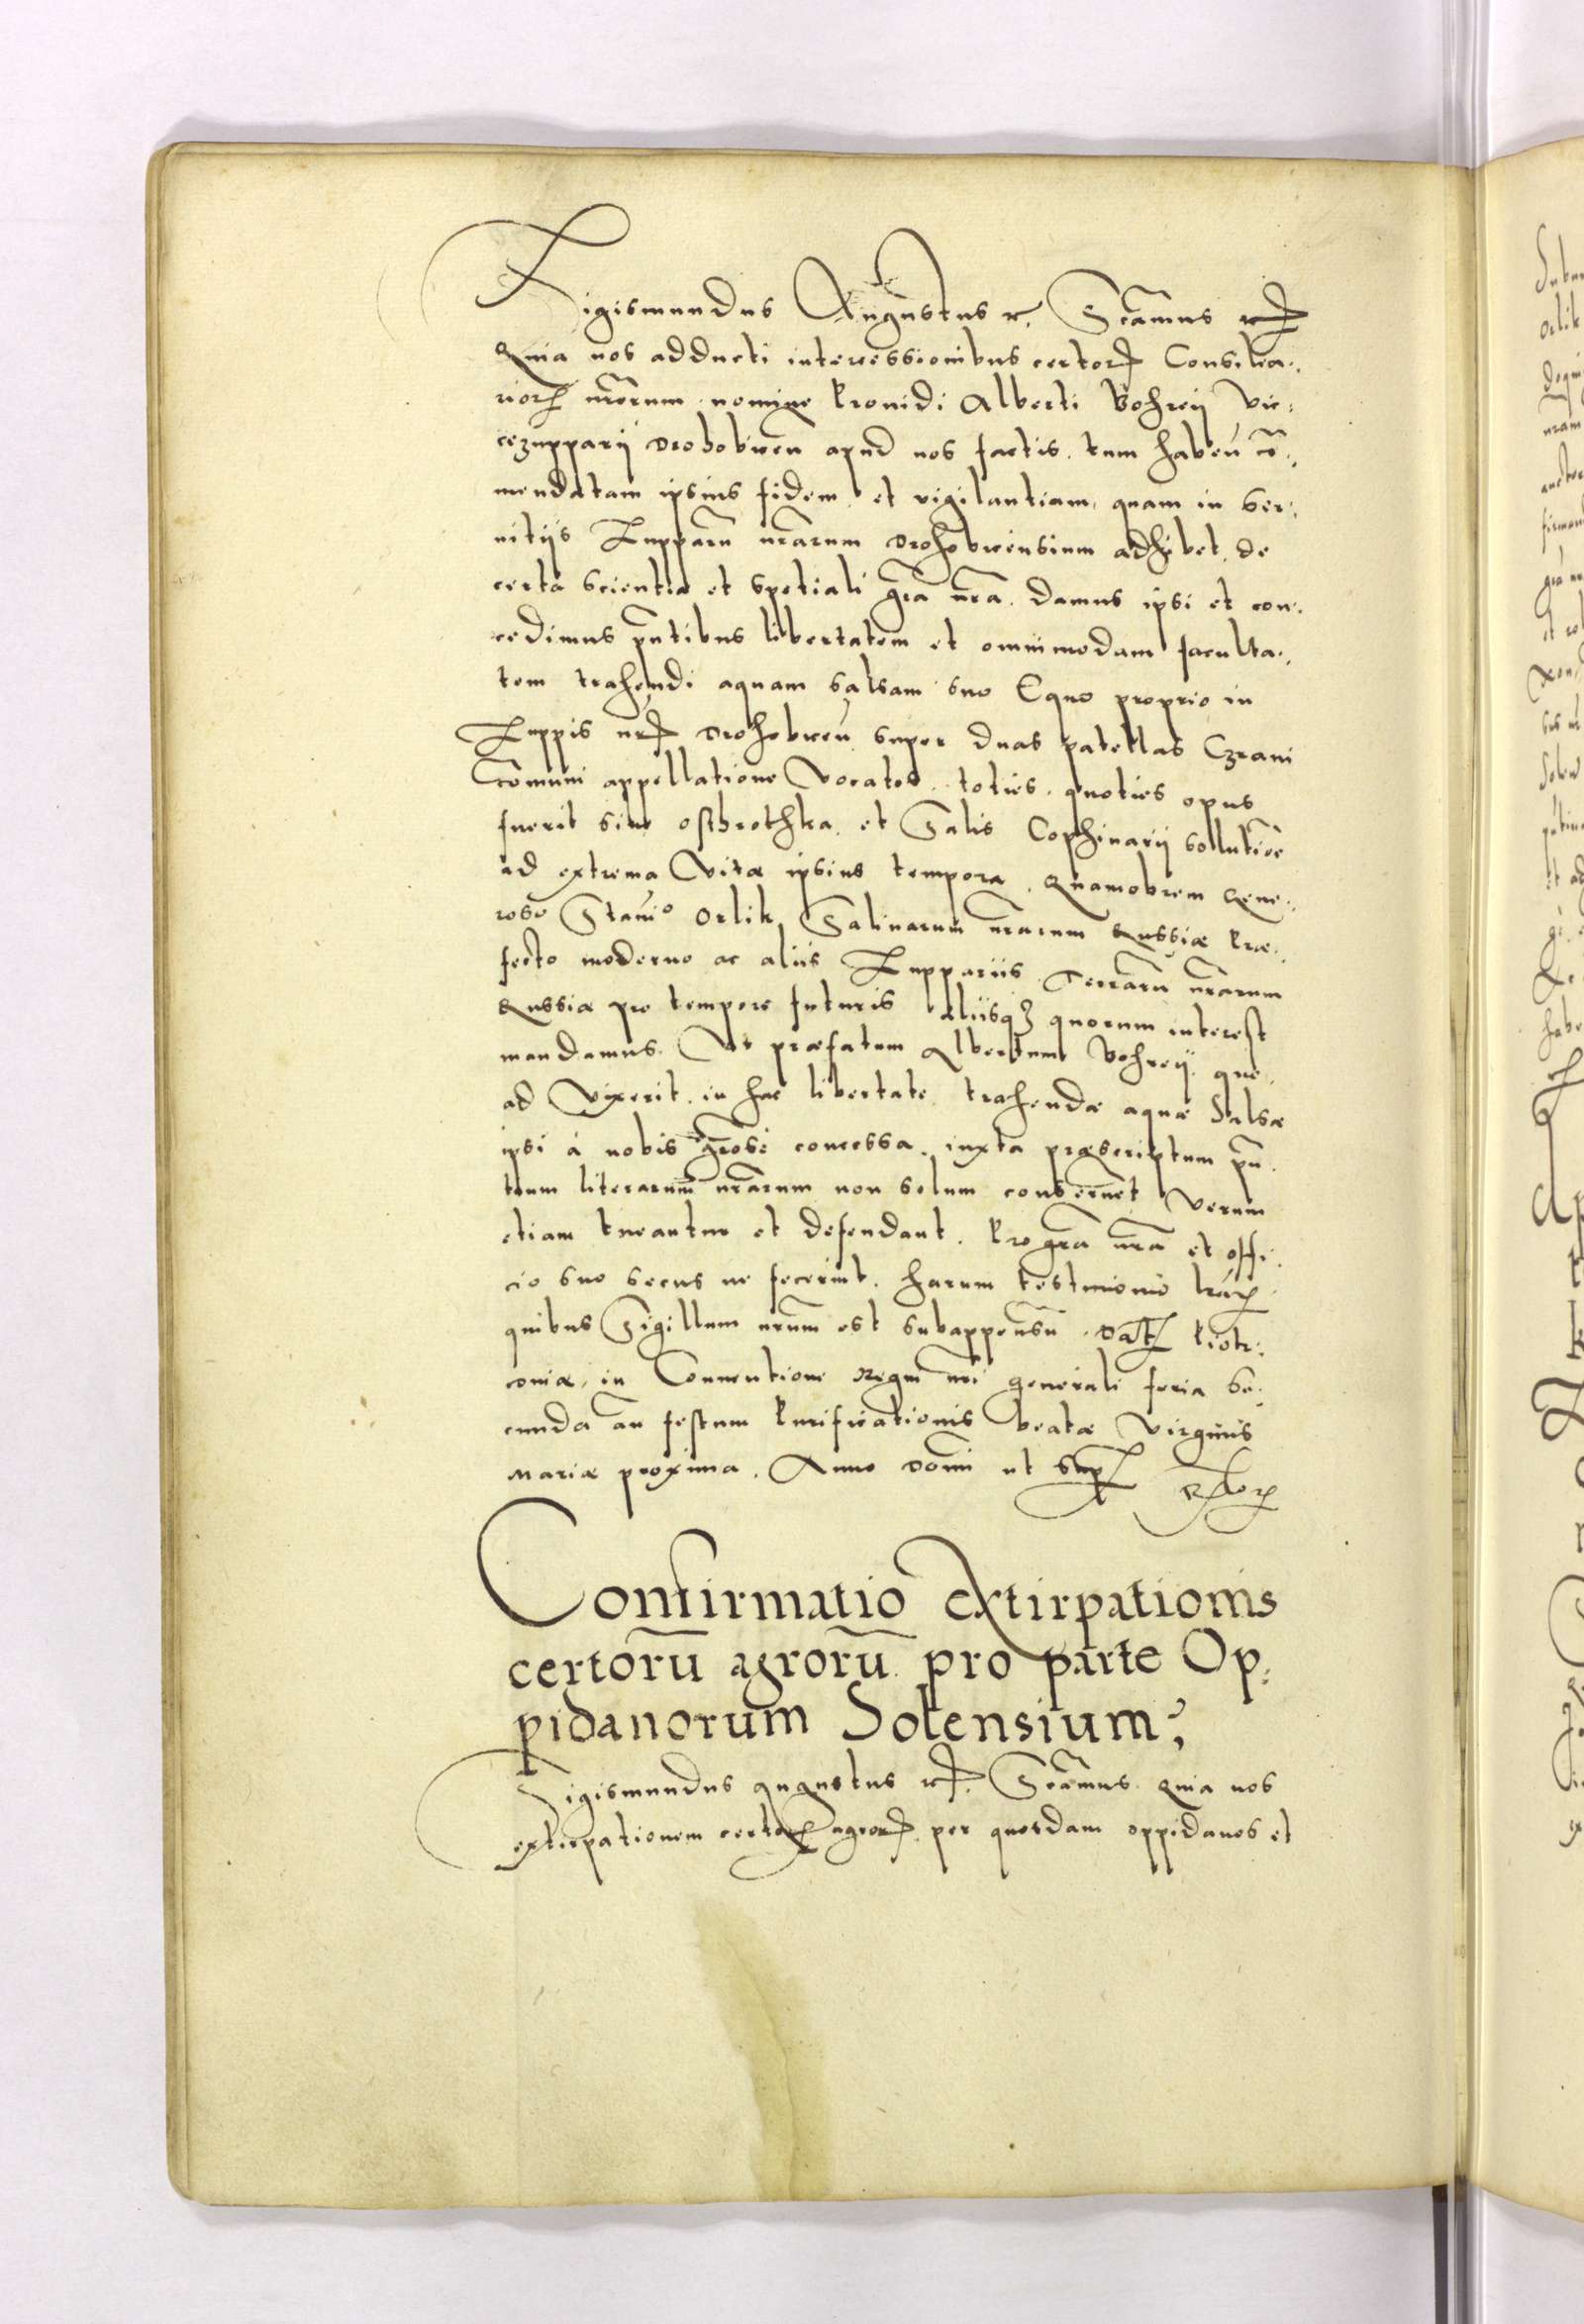 Sigismundus Augustus rc. S.camus etc
Quia nos adducti intercessionibus certor Consilia:
rior nrorum nomine Providi Alberti Bohrey vic:
cezupparii Drohobicen apud nos factis. tum haben co:
mendatam ipsius fidem et vigilantiam, quam in ser:
vitiis Zupparu nrarum Drohobicensium adhibet, de
certa scientia et spetiali gra nra. damus ipsi et con:
cedimus pntibus libertatem et omnimodam faculta:
tem trahendi aquam salsam suo Equo proprio in
Zuppis nr Drohobicen super duas patellas Czrani
Comuni appellatione vocatas. toties quoties opus
fuerit sine osthrothka et Salis Cophinarii sollutioe
ad extrema vitæ ipsius tempora. Quamobrem Gene:
roso Stanio Orlik Salinarum nrarum Russiæ Præ:
fecto moderno ac aliis Zuppariis Terraru nrarum
Russiæ pro tempore futuris aliisq3 quorum interest
mandamus. Ut præfatum Albertum Bohrey. quo
ad vixerit. in hac libertate trahendæ aquæ Salsæ
ipsi à nobis grose concessa. iuxta præscriptum pn
tium literarum nrarum non solum conservet verum
etiam tueantur et defendant. Pro gra nra et offi:
cio suo secus ne fecerint. harum testimonio lrar
quibus Sigillum nrum est subappensu. Dat Piotr:
coniæ, in Conventione Regni nri generali feria se:
cunda an festum Purificationis beatæ Virginis
Mariæ proxima. Anno Domi ut sup
Confirmatio extirpationis
certorū agrorū pro parte Op:
pidanorum Solensium;
Sigismundus Augustus rc. S.camus. Quia nos
extirpationem certor agror per quosdam oppidanos et